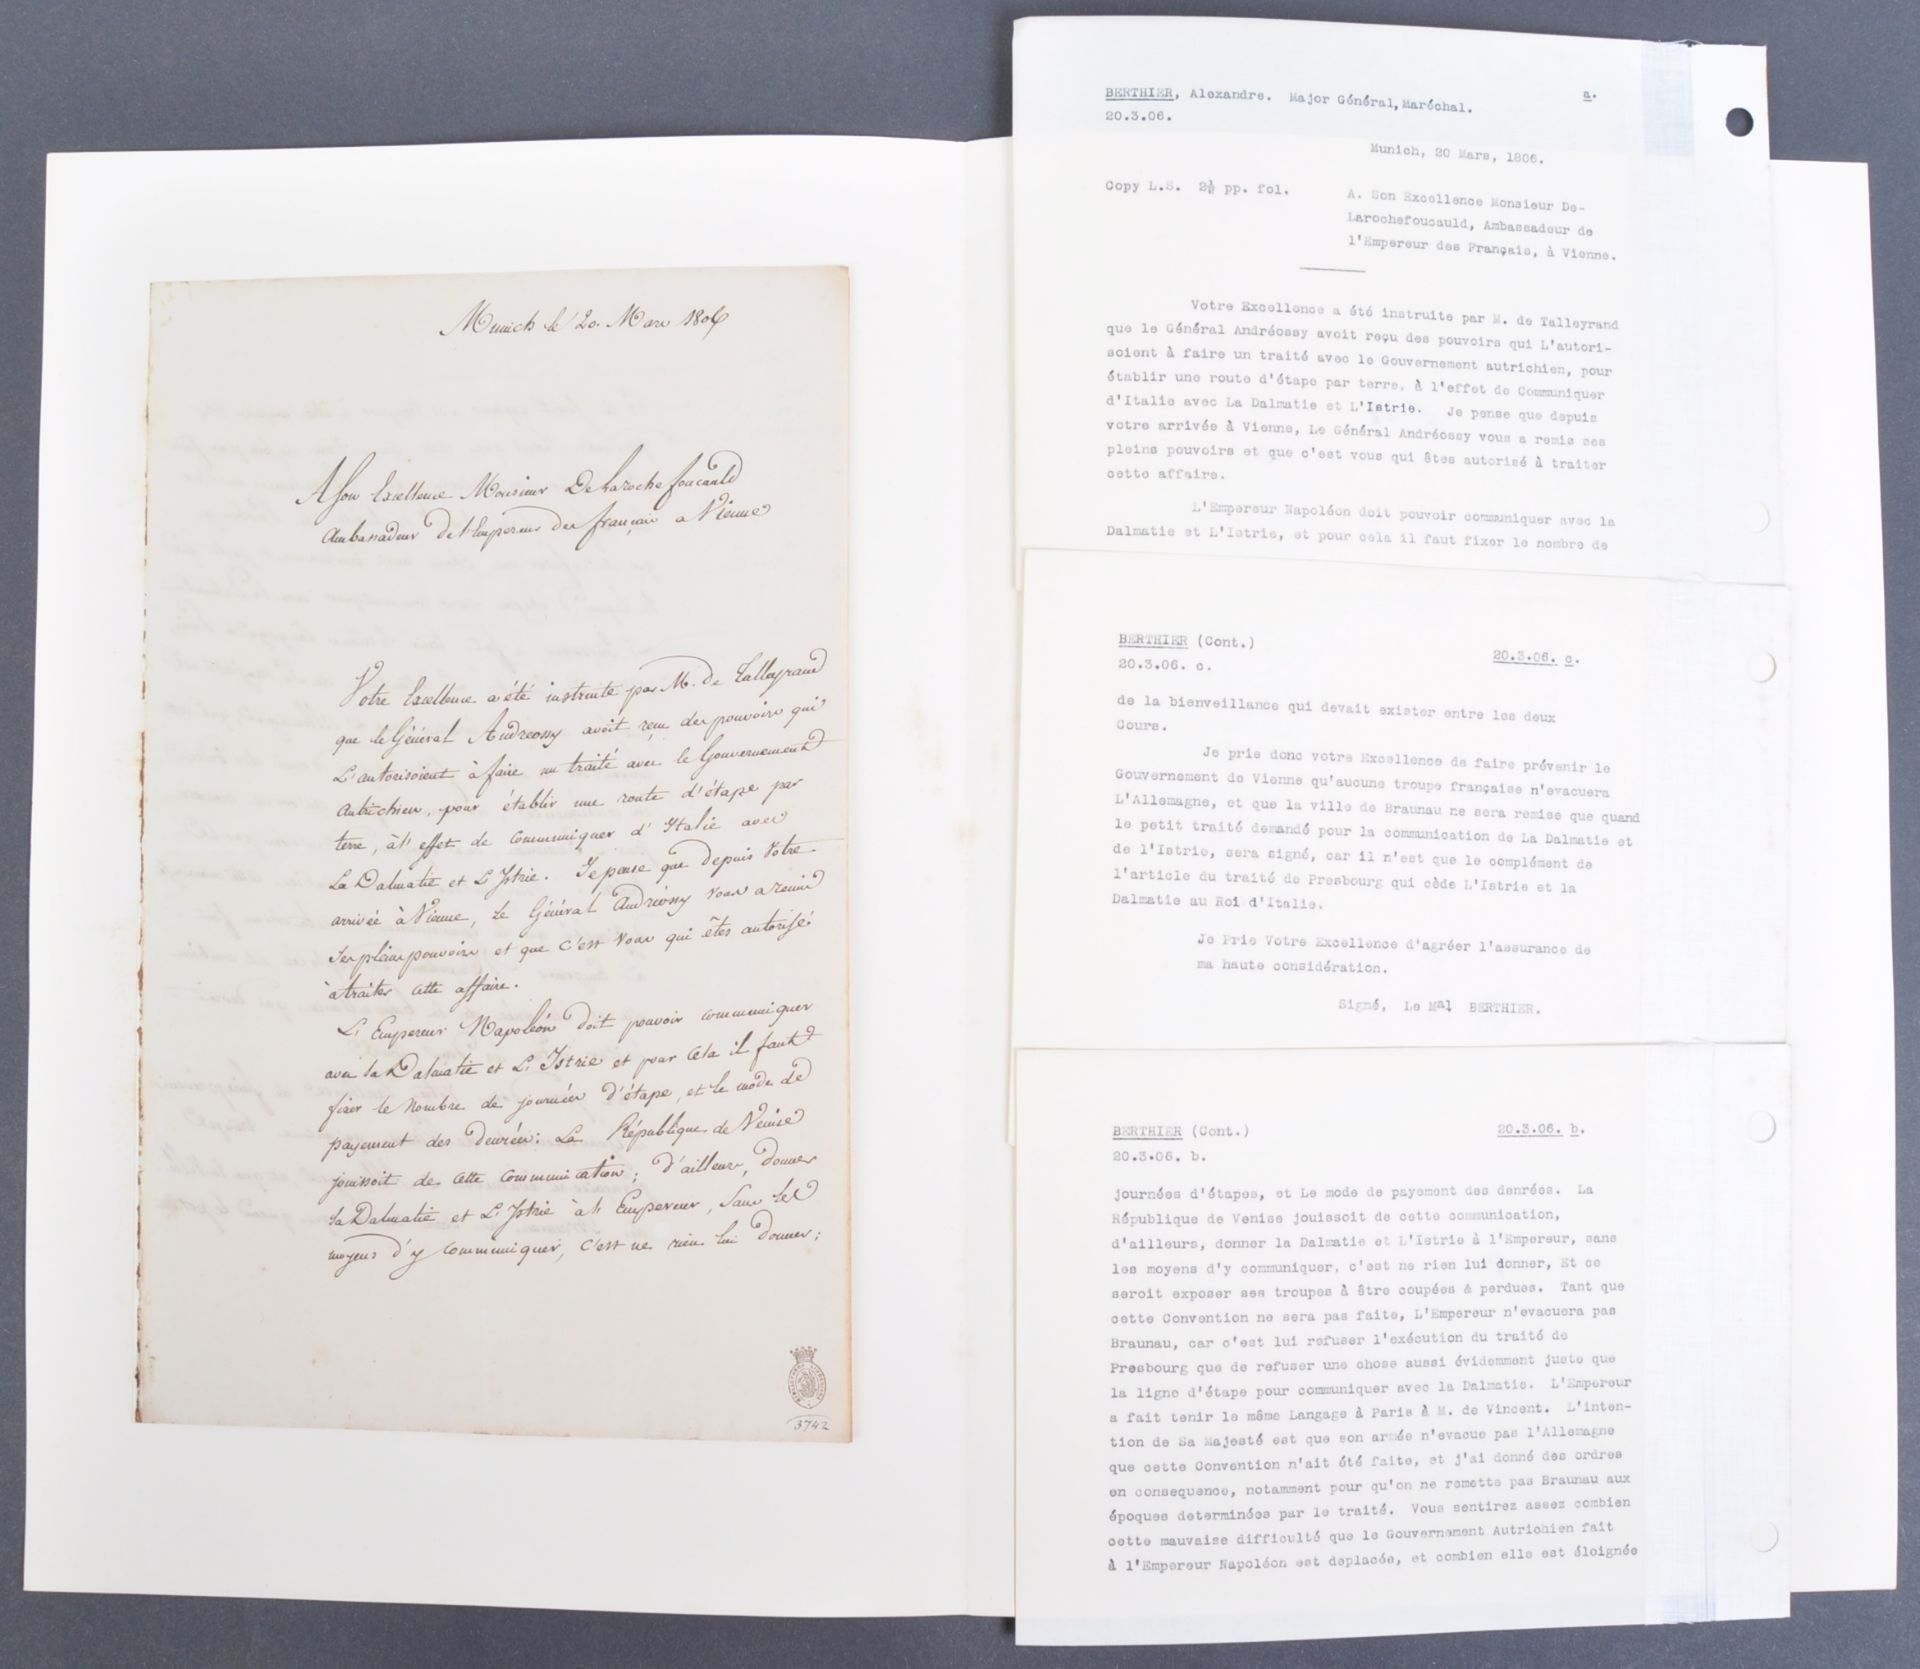 Munich le 20. Mars 1806
A Son Excellence Monsieur DeLarochefoucauld
Ambassadeur de l'Empereur des français a Vienne
Votre Excellence a été instruite par M. de Talleyrand
que le Général Andreossy avoit reçu des pouvoirs qui
L'autorisoient à faire un traité avec le Gouvernement
Autrichien, pour établir une route d'étape par
terre, à l'effet de Communiquer d'Italie avec
La Dalmatie et L'Istrie. Je pense que depuis Votre
arrivée à Vienne, Le Général Andréossy vous a remis
Ses pleins pouvoirs et que c'est vous qui êtes autorisé
à traiter cette affaire.
L'Empereur Napoléon doit pouvoir communiquer
avec la Dalmatie et L'Istrie et pour cela il faut
fixer le Nombre de journées d'étape, et le mode de
payement des denrées: La République de Venise
jouissoit de cette communication; d'ailleurs, donner
la Dalmatie et L'Istrie à l'Empereur, Sans les
moyens d'y communiquer, c'est ne rien lui donner;
3742
BERTHIER, Alexandre. Major Général, Maréchal. a.
20.3.06.
Munich, 20 Mars, 1806.
Copy L.S. 2½ pp. fol.
A. Son Excellence Monsieur De-
Larochefoucauld, Ambassadeur de
l'Empereur des Français, à Vienne.
Votre Excellence a été instruite par M. de Talleyrand
que le Général Andréossy avoit reçu des pouvoirs qui L'autori-
soient à faire un traité avec le Gouvernement autrichien, pour
établir une route d'étape par terre, à l'effet de Communiquer
d'Italie avec La Dalmatie et L'Istrie. Je pense que depuis
votre arrivée à Vienne, Le Général Andréossy vous a remis ses
pleins pouvoirs et que c'est vous qui êtes autorisé à traiter
cette affaire.
L'Empereur Napoléon doit pouvoir communiquer avec la
Dalmatie et L'Istrie, et pour cela il faut fixer le nombre de
BERTHIER (Cont.) 20.3.06. c.
20.3.06. c.
de la bienveillance qui devait exister entre les deux
Cours.
Je prie donc votre Excellence de faire prévenir le
Gouvernement de Vienne qu'aucune troupe française n'evacuera
L'Allemagne, et que la ville de Braunau ne sera remise que quand
le petit traité demandé pour la communication de La Dalmatie et
de l'Istrie, sera signé, car il n'est que le complément de
l'article du traité de Presbourg qui cède L'Istrie et la
Dalmatie au Roi d'Italie.
Je Prie Votre Excellence d'agréer l'assurance de
ma haute considération.
Signé, Le Mal BERTHIER.
BERTHIER (Cont.) 20.3.06. b.
20.3.06. b.
journées d'étapes, et Le mode de payement des denrées. La
République de Venise jouissoit de cette communication,
d'ailleurs, donner la Dalmatie et L'Istrie à l'Empereur, sans
les moyens d'y communiquer, c'est ne rien lui donner, Et ce
seroit exposer ses troupes à être coupées & perdues. Tant que
cette Convention ne sera pas faite, L'Empereur n'evacuera pas
Braunau, car c'est lui refuser l'exécution du traité de
Presbourg que de refuser une chose aussi évidemment juste que
la ligne d'étape pour communiquer avec la Dalmatie. L'Empereur
a fait tenir le même Langage à Paris à M. de Vincent. L'inten-
tion de Sa Majesté est que son armée n'evacue pas l'Allemagne
que cette Convention n'ait été faite, et j'ai donné des ordres
en consequence, notamment pour qu'on ne remette pas Braunau aux
époques determinées par le traité. Vous sentirez assez combien
cette mauvaise difficulté que le Gouvernement Autrichien fait
à l'Empereur Napoléon est deplacée, et combien elle est éloignée